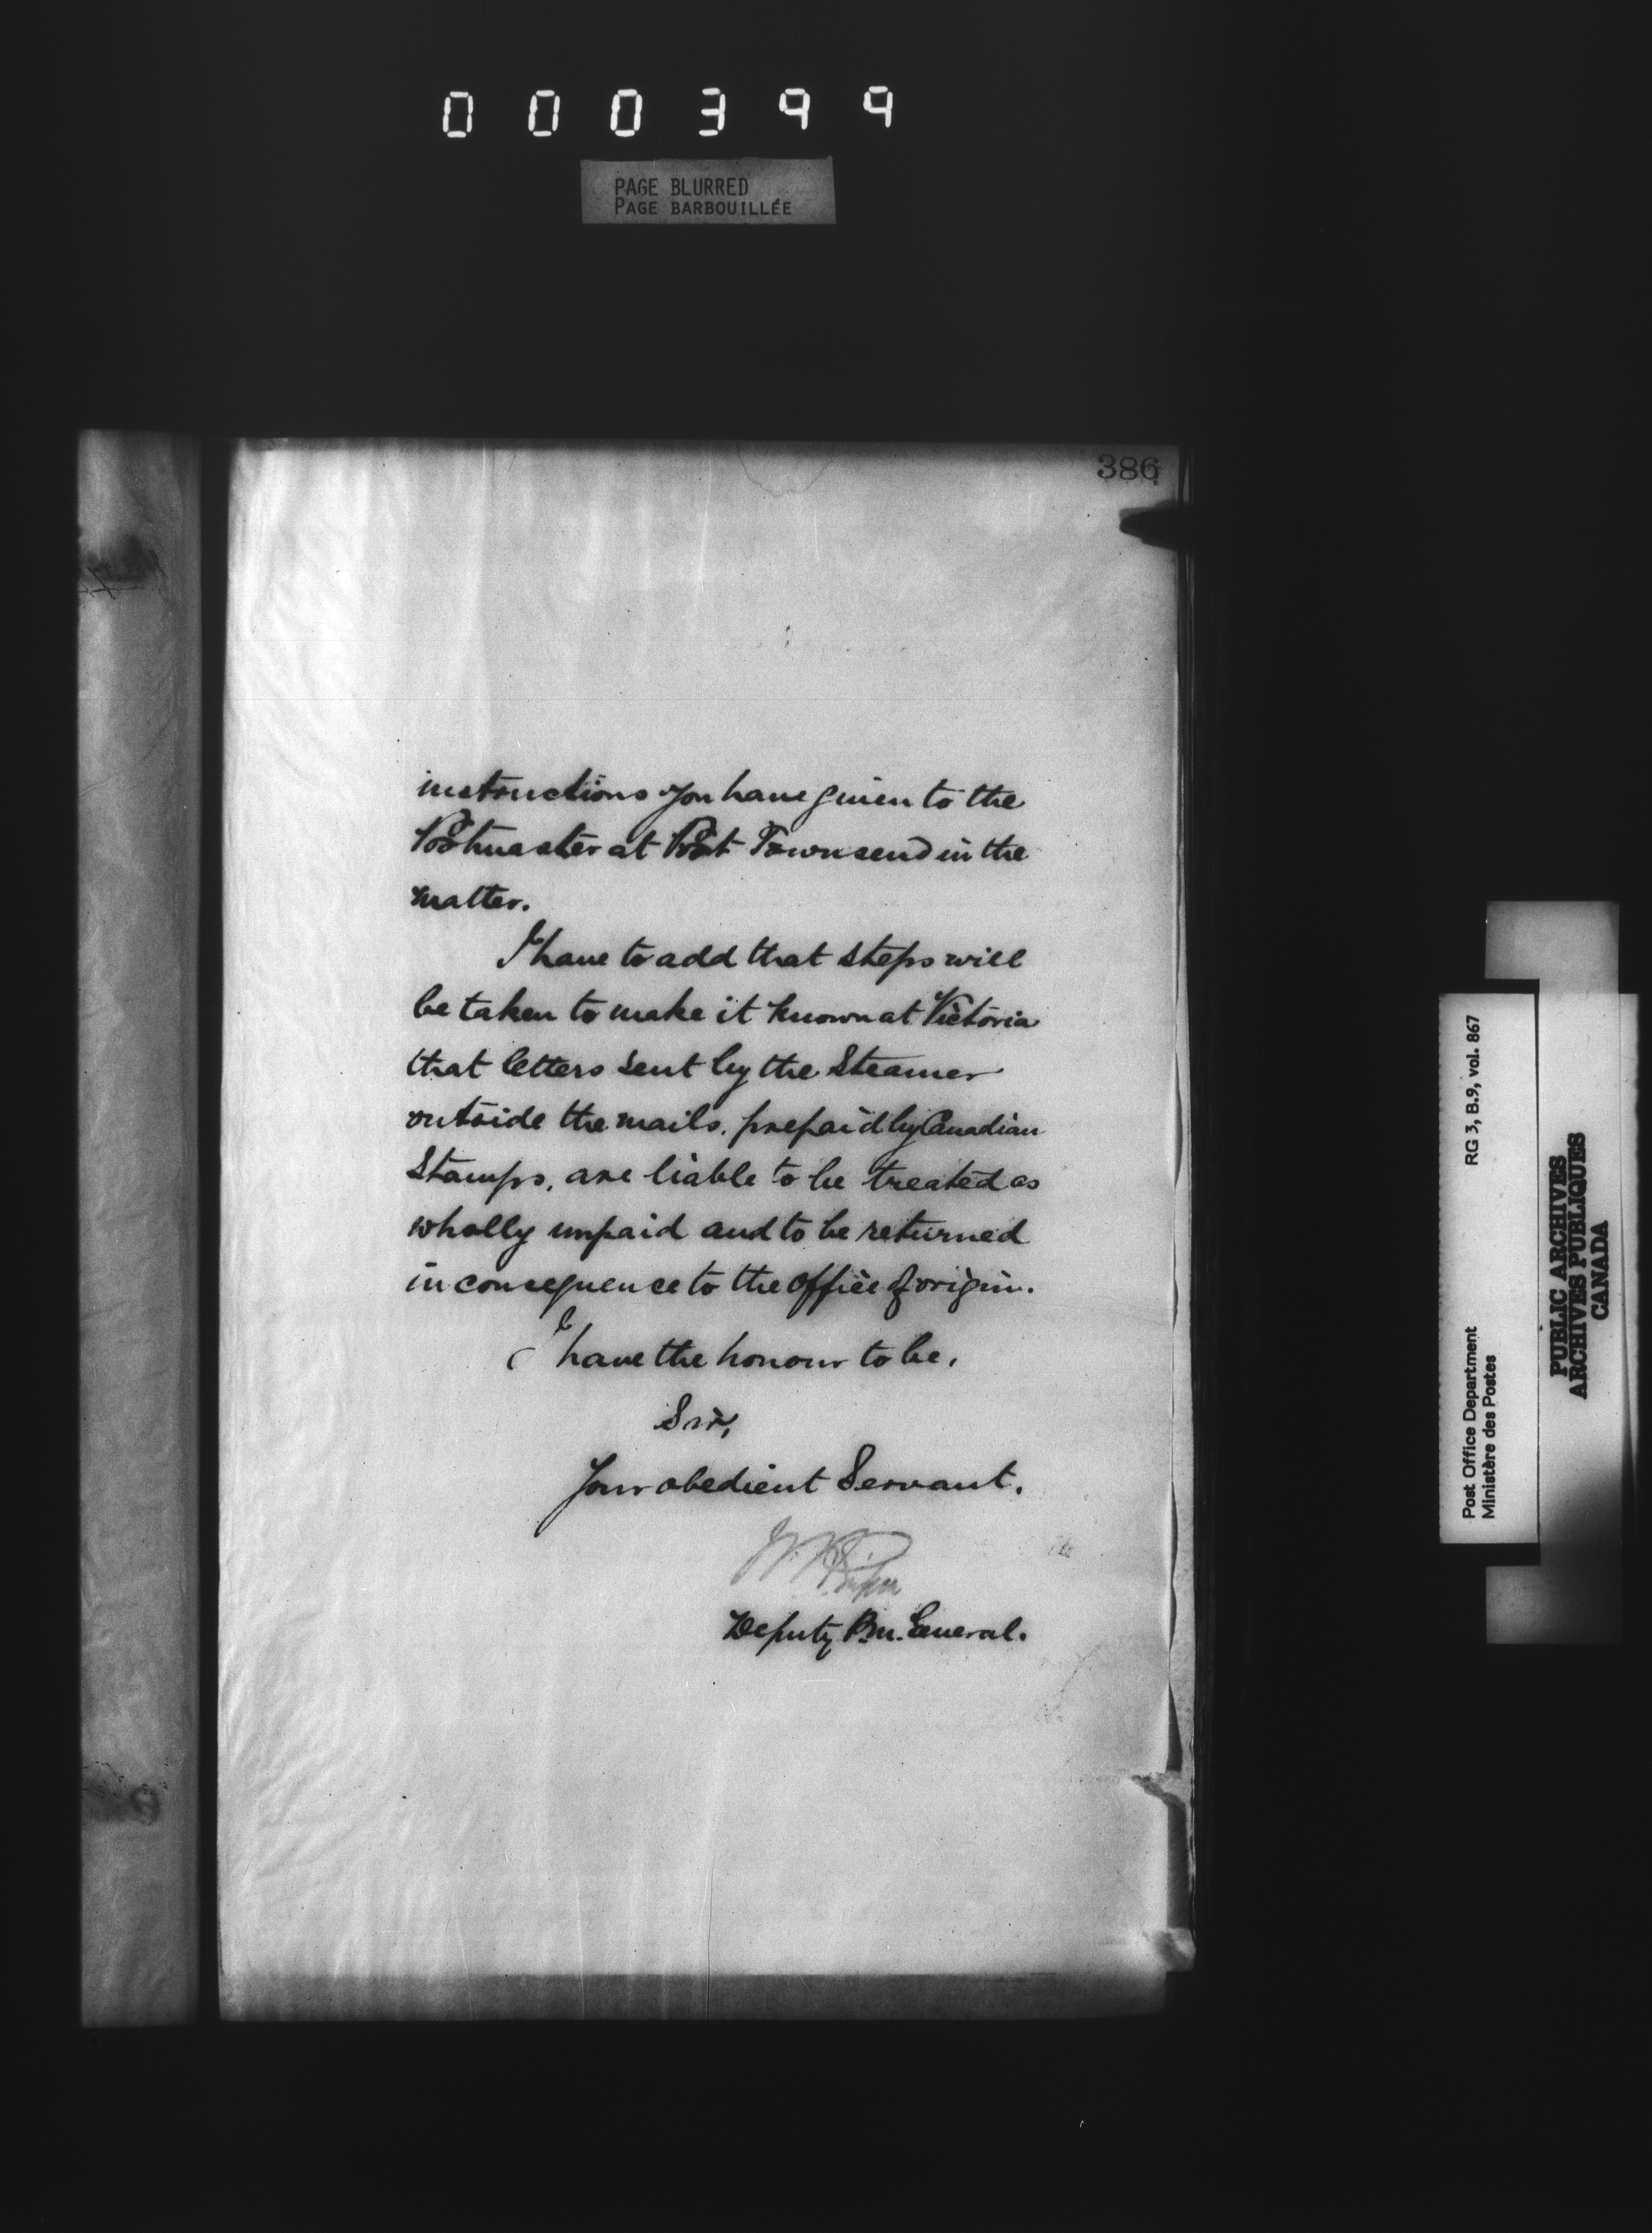 000399
PAGE BLURRED
PAGE BARBOUILLÉE
386
instructions you have given to the
Postmaster at Port Townsend in the
matter.
I have to add that steps will
be taken to make it known at Victoria
that letters sent by the Steamer
outside the mails, prepaid by Canadian
Stamps, are liable to be treated as
wholly unpaid and to be returned
in consequence to the office of origin.
I have the honour to be,
Sir,
Your obedient Servant.
Deputy P.M. General.
Post Office Department
Ministère des Postes
RG 3, B.9, vol. 867
PUBLIC ARCHIVES
ARCHIVES PUBLIQUES
CANADA